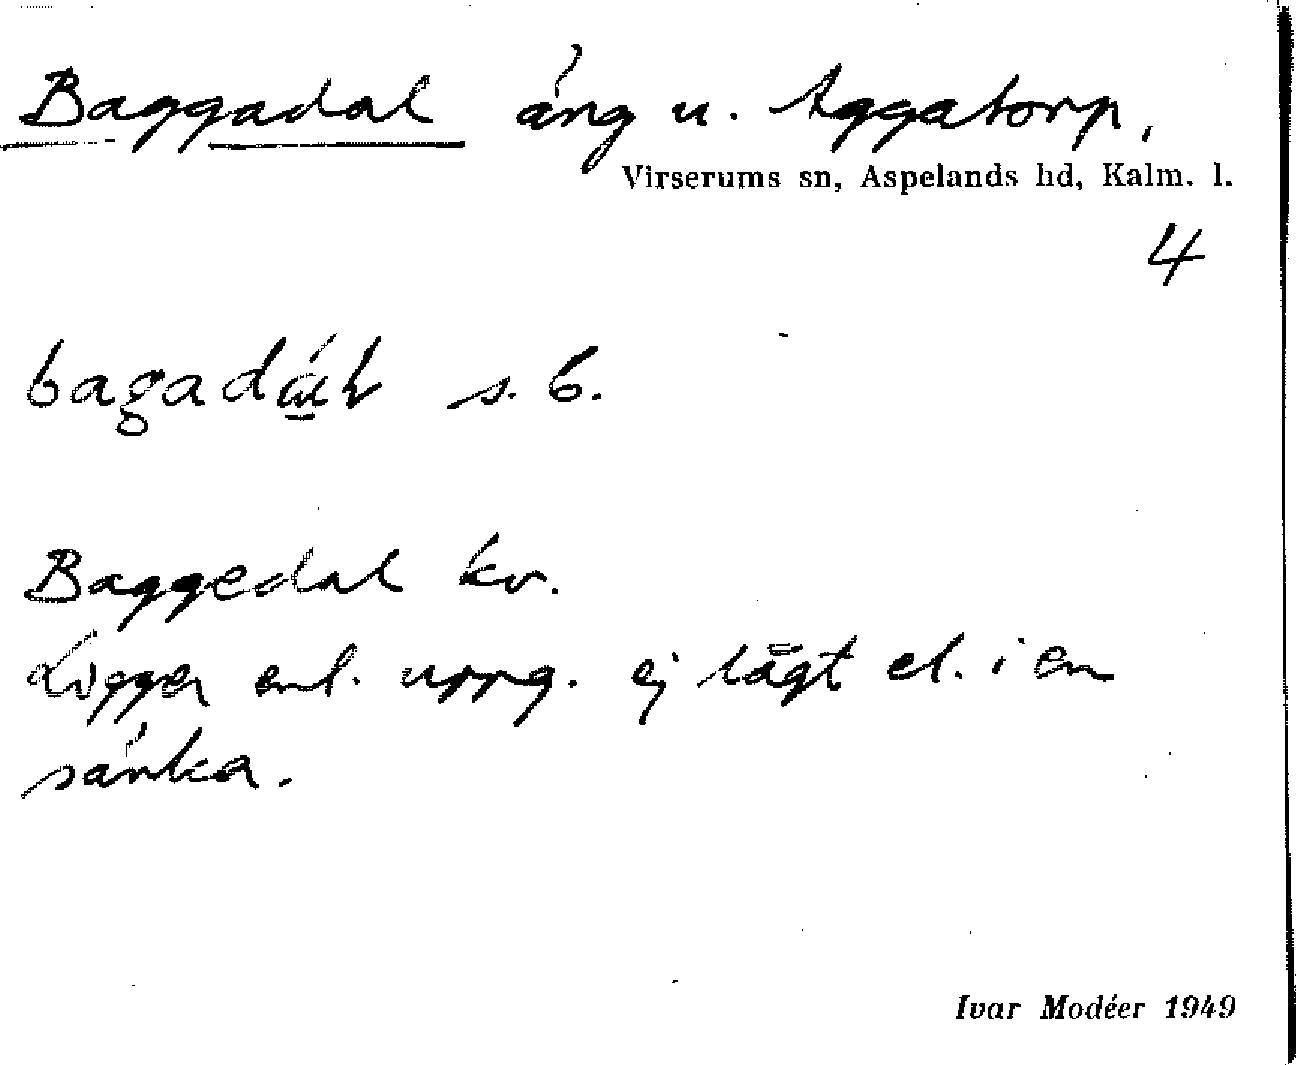 Baggadal äng u. Aggatorp,
Virserums sn, Aspelands hd, Kalm. l.
4
s. b.
Baggedal kv.
Ligger enl. uppg. ej lågt el. i en
sänka.
Ivar Modéer 1949